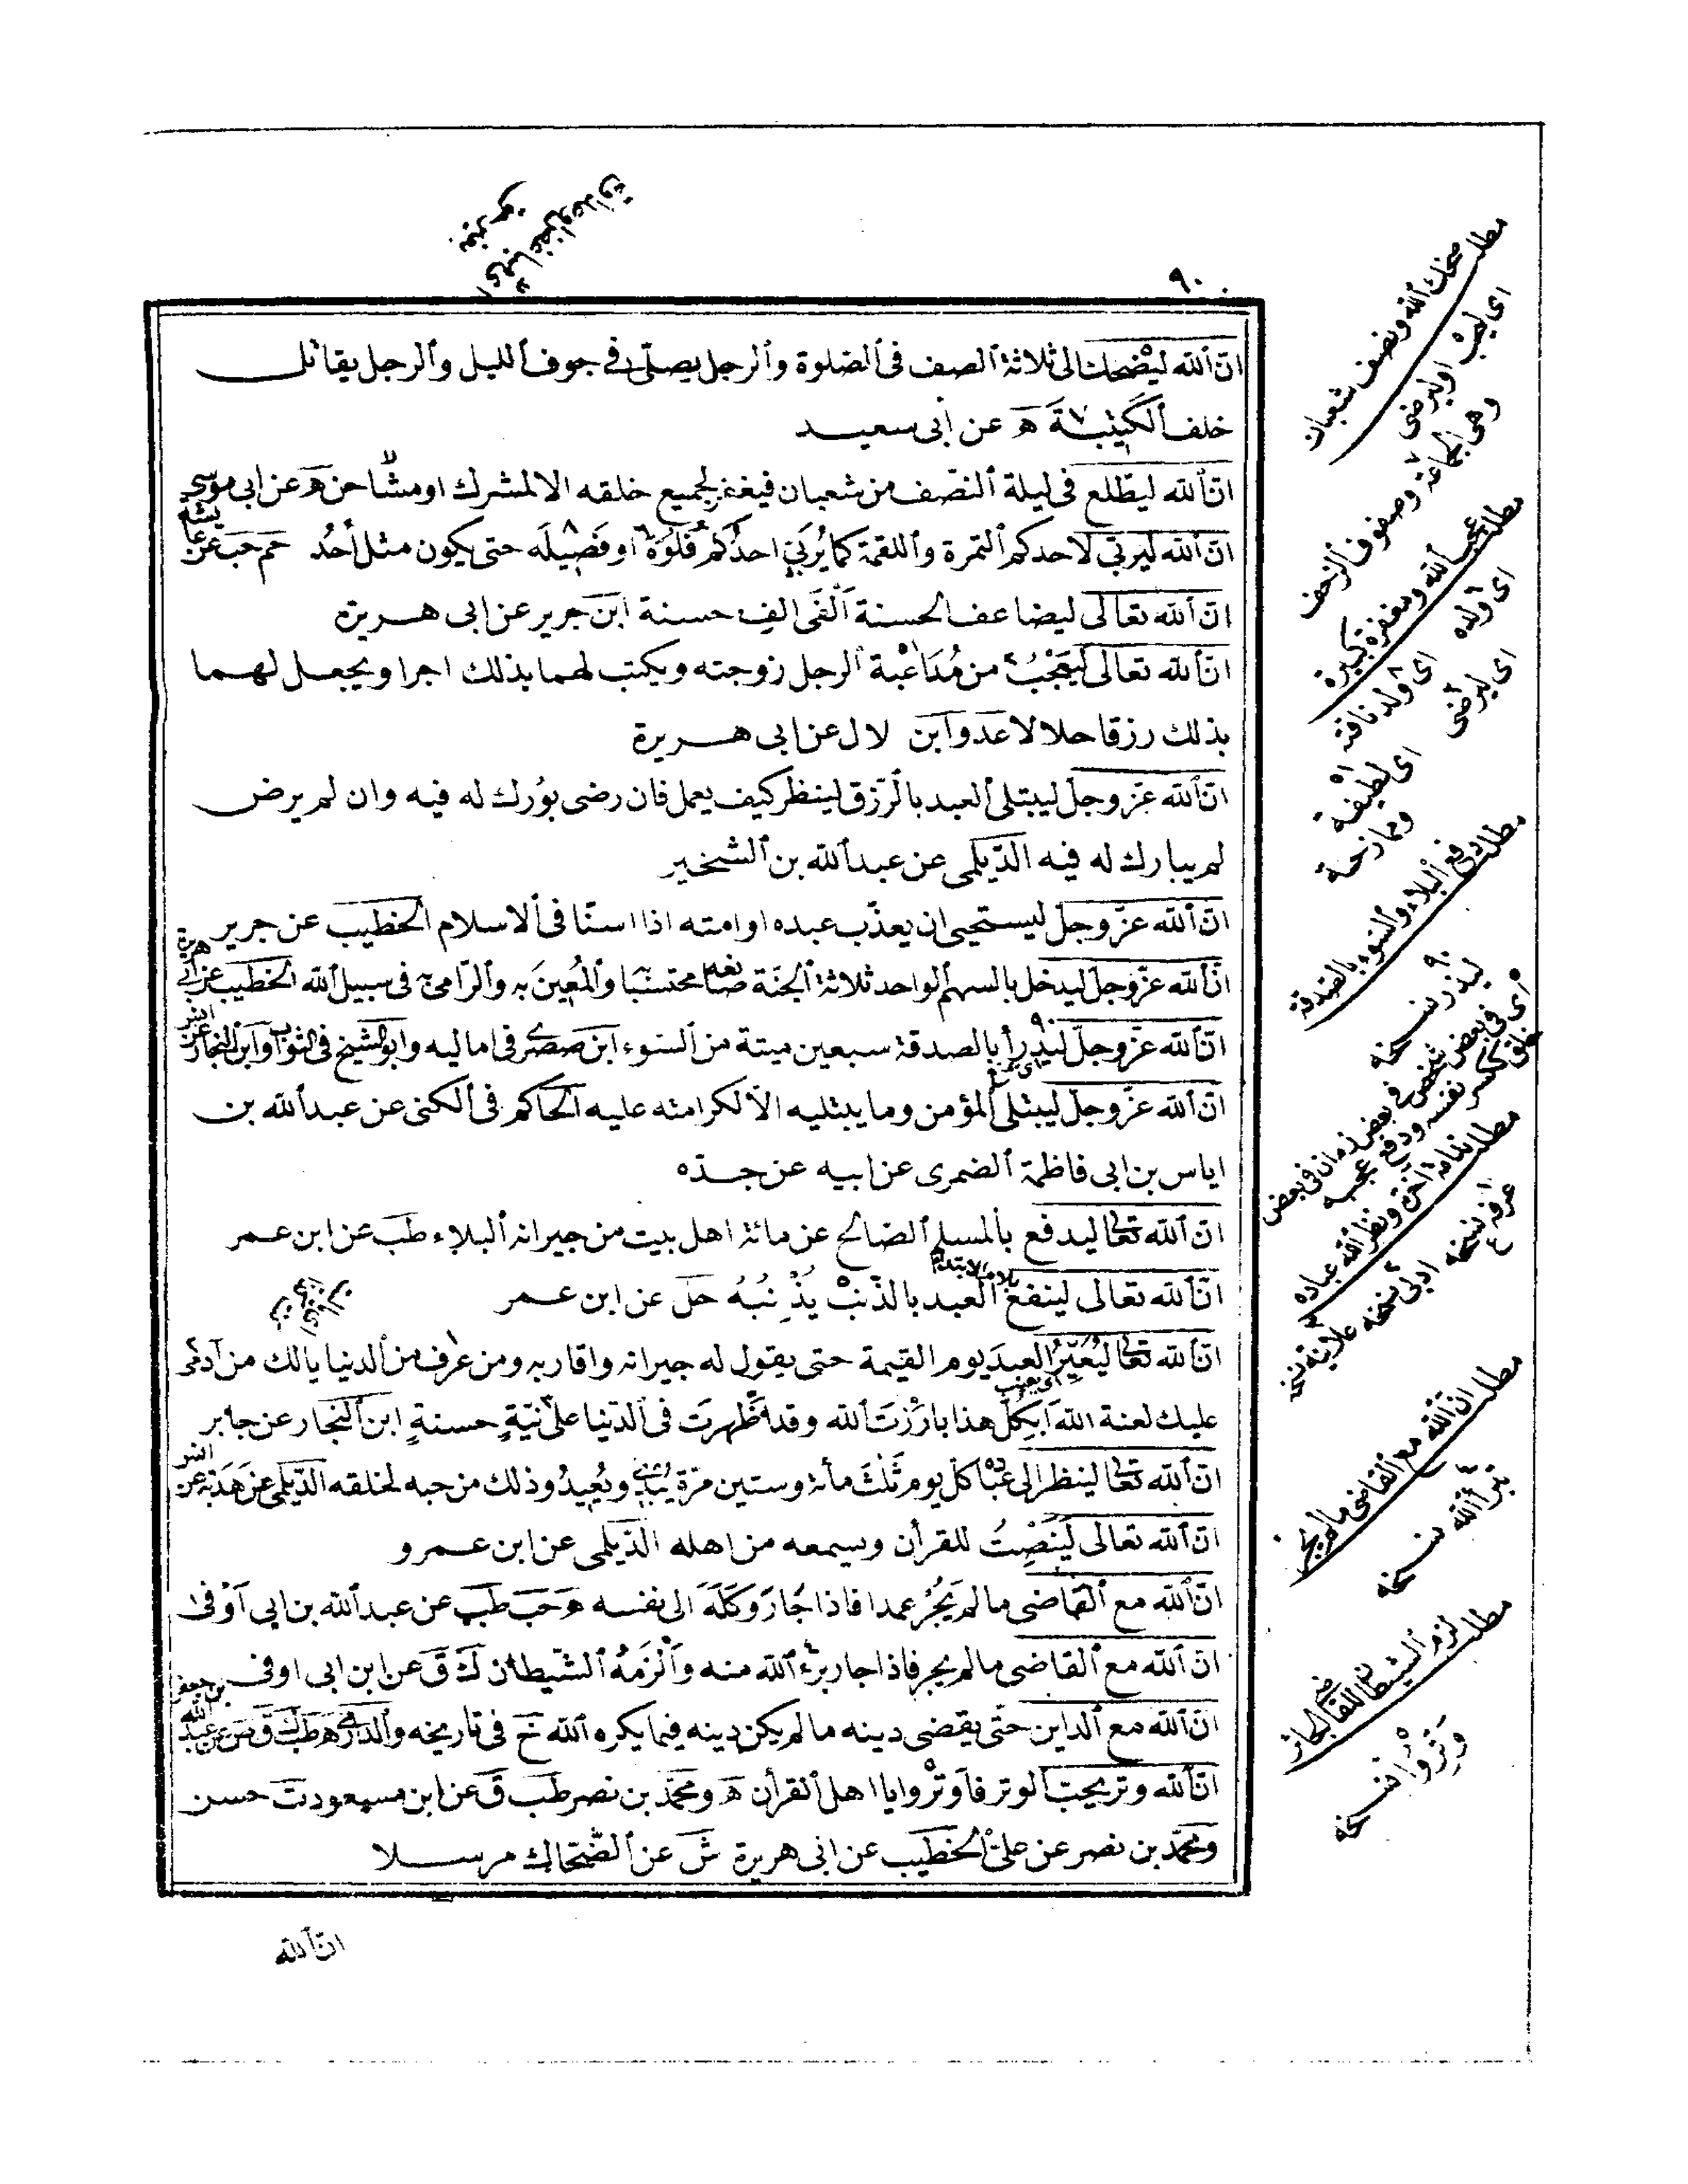 ٩٠
انّ ٱلله ليضحك الى ثلاثة ٱلصف فى ٱلصّلوة وٱلرجل يصلّى فى جوف ٱلليل وٱلرجل يقاتل
خلف ٱلكَتيبة ه عن ابى سعيد
انّ ٱلله ليطّلع فى ليلة ٱلنّصف من شعبان فيغفر لجميع خلقه الا لمشرك او مشاحن ه عن ابى موسى
انّ ٱلله ليربّى لاحدكم ٱلتمرة وٱللقمة كما يُربّى احدُكم فَلُوَّه او فَصيلَه حتى يكون مثل أُحُد حم حب عن عايشه
انّ ٱلله تعالى ليضاعف الحسنة ألْفَى الف حسنة ابن جرير عن ابى هريرة
انّ ٱلله تعالى ليَعجَبُ من مُدَاعَبة ٱلرجل زوجته ويكتب لهما بذلك اجرا ويجعل لهما
بذلك رزقا حلالا عد وابن لال عن ابى هريرة
انّ ٱلله عزّ وجلّ ليبتلى ٱلعبد بالرّزق لينظر كيف يعمل فان رضى بُورك له فيه وان لم يرض
لم يبارك له فيه الدّيلمى عن عبد ٱلله بن ٱلشخير
انّ ٱلله عزّ وجلّ ليستحيى ان يعذّب عبده او امته اذا اسنّا فى ٱلاسلام الخطيب عن جرير
انّ ٱلله عزّ وجلّ ليدخل بالسهم ٱلواحد ثلاثة ٱلجنّة صانعه محتسبا وٱلمُعينَ به وٱلرّامى فى سبيل ٱلله الخطيب عن ابى هريرة
انّ ٱلله عزّ وجلّ ليدرأ بالصدقة سبعين ميتة من ٱلسّوء ابن صصرى فى اماليه وابو الشيخ فى الثواب وابن النجار عن انس
انّ ٱلله عزّ وجلّ ليبتلى ٱلمؤمن وما يبتليه الّا لكرامته عليه الحاكم فى ٱلكنى عن عبد ٱلله بن
اياس بن ابى فاطمة ٱلضمرى عن ابيه عن جدّه
انّ ٱلله تعالى ليدفع بٱلمسلم ٱلصّالح عن مائة اهل بيت من جيرانه ٱلبلاء طب عن ابن عمر
انّ ٱلله تعالى لينفع ٱلعبد بالذّنبْ يُذْنِبُهُ حل عن ابن عمر
انّ ٱلله تعالى ليُعَيِّرُ العبدَ يوم القيمة حتى يقول له جيرانه واقاربه ومن عرف من ٱلدنيا يالك من آدمى
عليك لعنة ٱلله أبكلّ هذا بارَزتَ ٱلله وقد ظَهرتَ فى ٱلدّنيا على نيّةٍ حسنةٍ ابن ٱلنّجار عن جابر
انّ ٱلله تعالى لينظر الى عباده كل يوم ثَلثَ مأئة وستين مرّة يُبدئ ويُعِيدُ وذلك من حبه لخلقه الدّيلمى عن هَدَبة عن انس
انّ ٱلله تعالى لَيُنصِتُ للقرأن ويسمعه من اهله الدّيلمى عن ابن عمرو
انّ ٱلله مع ٱلقاضى ما لم يَجُرْ عمدا فاذا جَارَ وَكَلَهُ الى نفسه ه حب طب عن عبد ٱلله بن ابى أوفى
انّ ٱلله مع ٱلقاضى ما لم يجر فاذا جار برئ ٱلله منه وألْزمَهُ ٱلشّيطان ك ق عن ابن ابى اوفى
انّ ٱلله مع ٱلداين حتّى يقضى دينه ما لم يكن دينه فيما يكره ٱلله خ فى تاريخه والدارمى ه طب ك ق عن عبد الله بن جعفر
انّ ٱلله وتر يحبّ ٱلوتر فأوتروا يا اهل ٱلقرأن ه ومحمّد بن نصر طب ق عن ابن مسعود ت حسن
ومحمّد بن نصر عن علىّ ٱلخطيب عن ابى هريرة ش عن ٱلضّحاك مرسلا
انّ ٱلله
مطلب ضحك ٱلله ونصف شعبان
اى ليحب او ليرضى
وهى الجماعة وصفوف الزحف
مطلب عجب ٱلله ومغفرة كبيرة
اى ولده
اى ولد ناقة
اى ليرضى
اى لطيفة
وممازحة
مطلب دفع ٱلبلاء وٱلسّوء بالصدقة
ليذر نسخه
عرفه نسخه
مطلب انّ ٱلله مع ٱلقاضى ما لم يجر
تبرأ ٱلله نسخه
مطلب لزم ٱلشيطان للقاضى الجائر
وترْوا نسخه